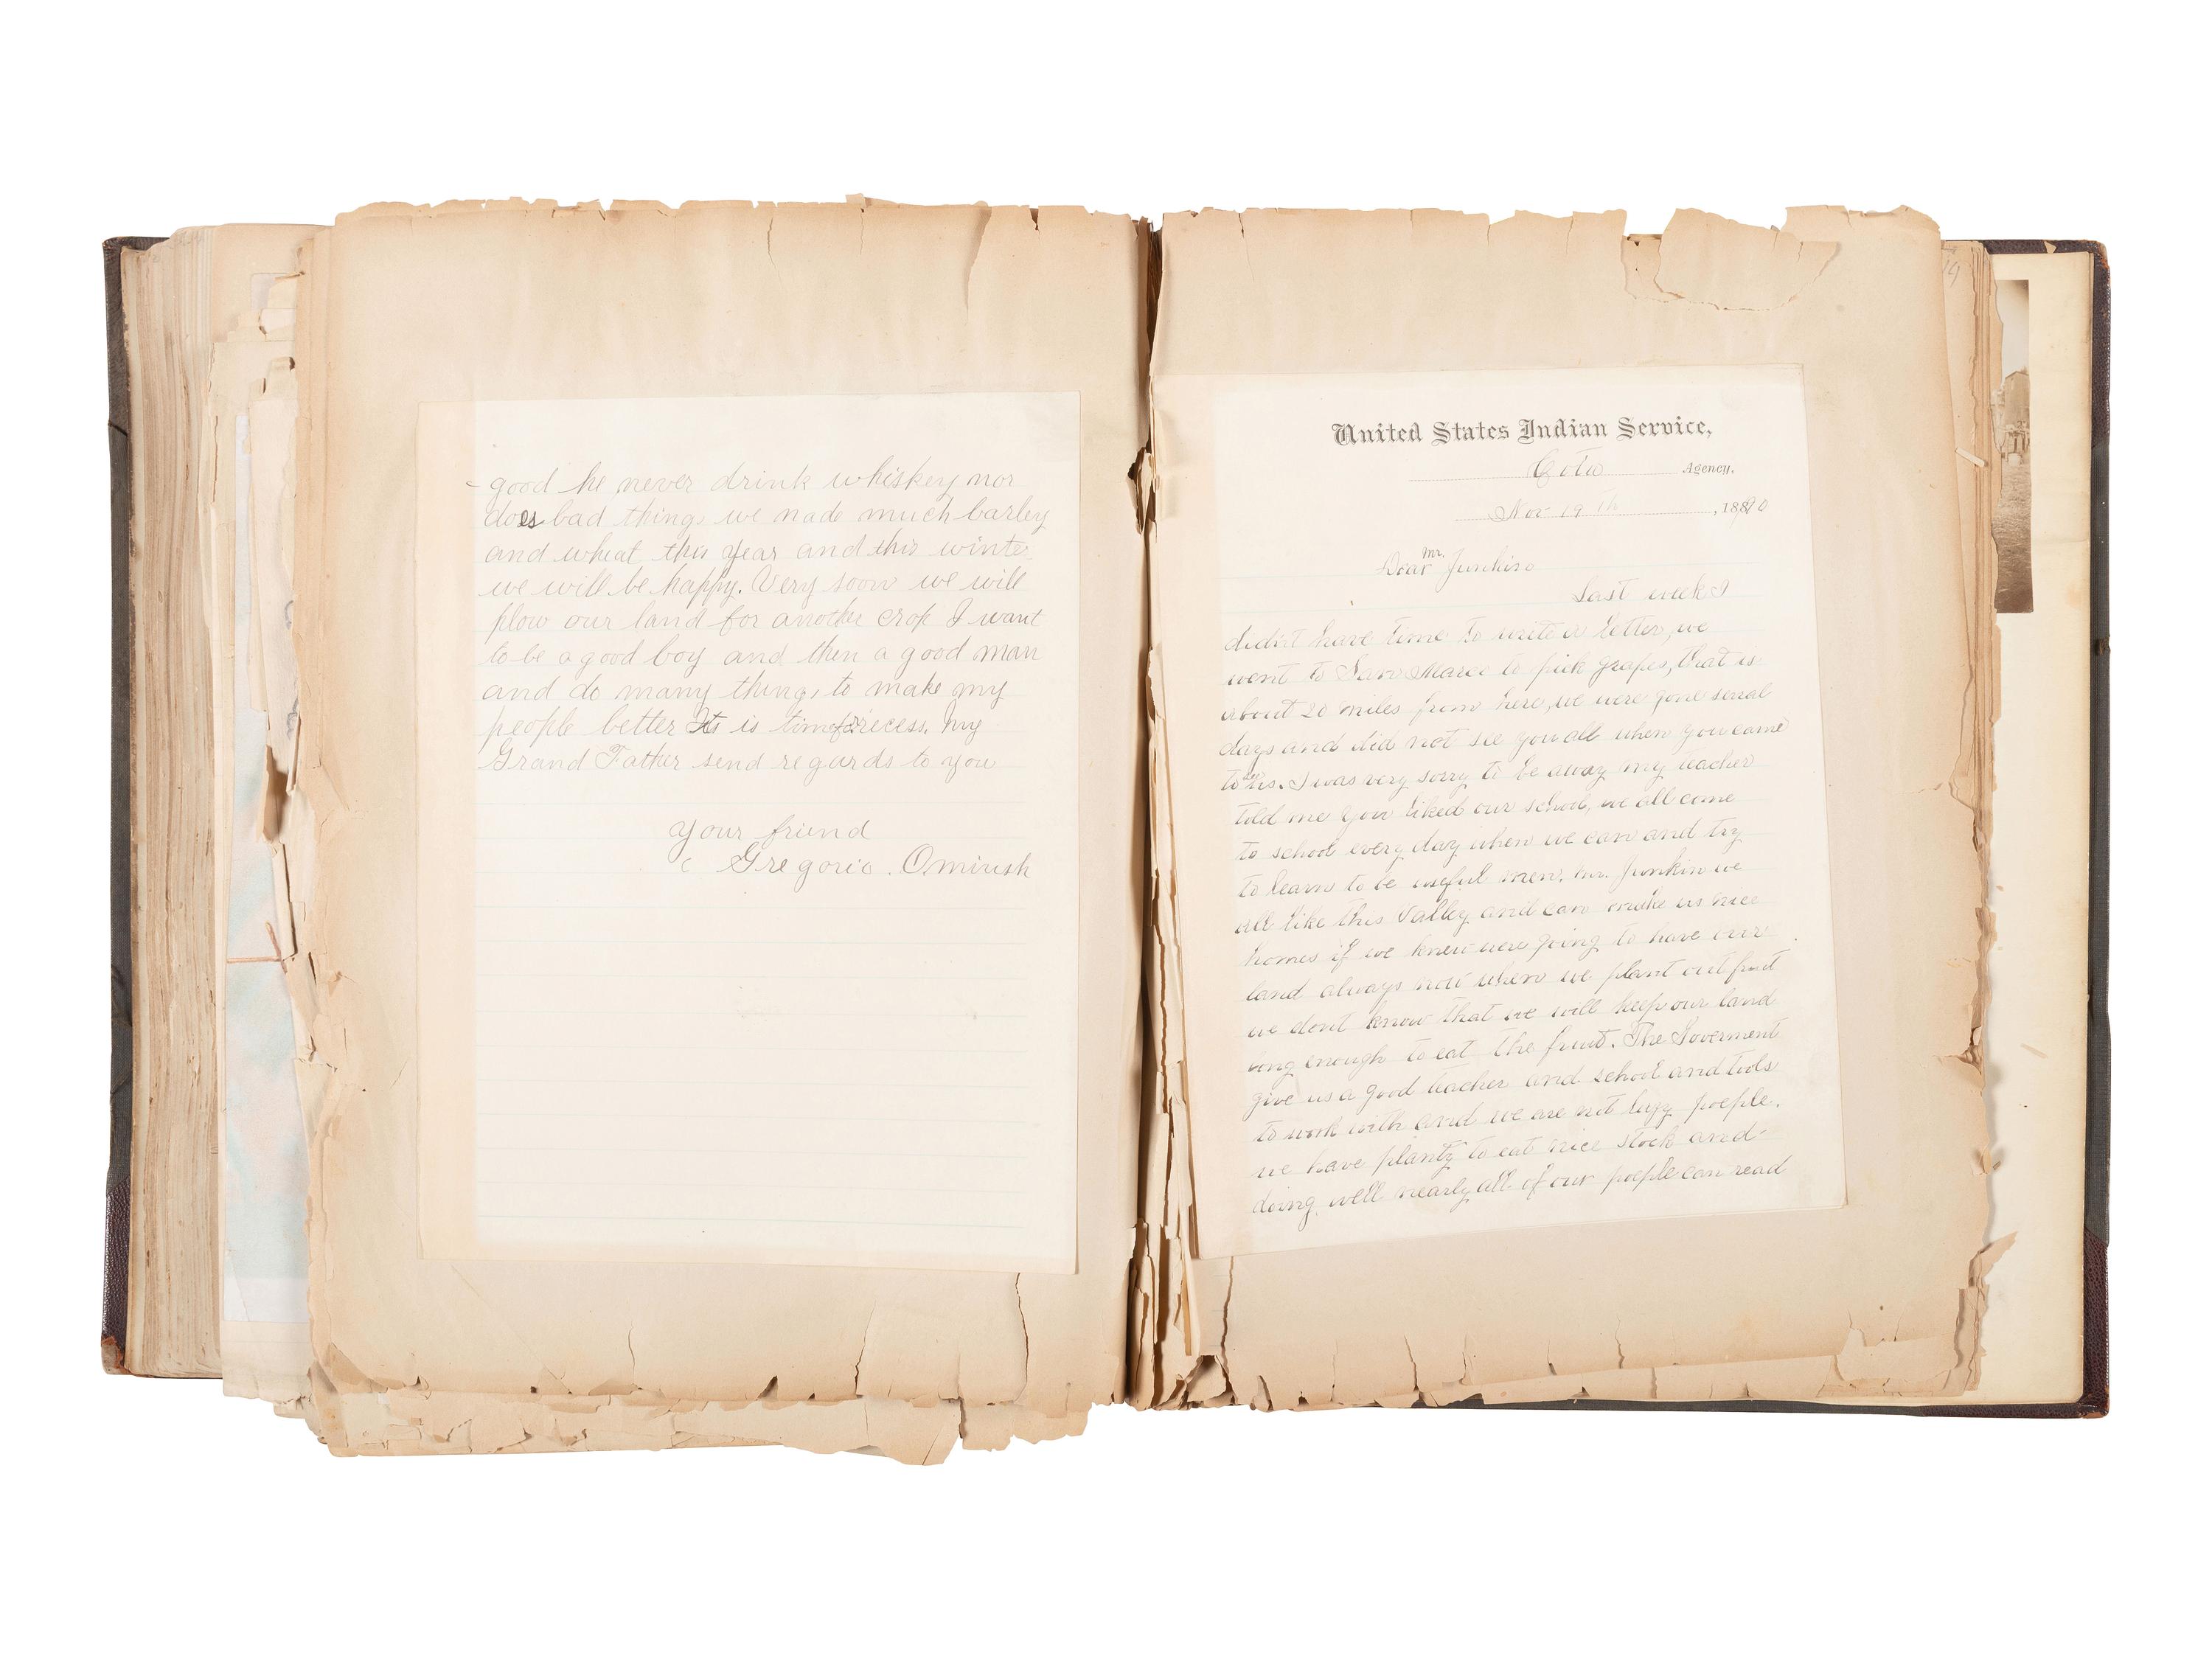 good he never drink whiskey nor
does bad things we made much barley
and wheat this year and this winter
we will be happy. Very soon we will
plow our land for another crop I want
to be a good boy and then a good man
and do many things to make my
people better Its is time for recess. My
Grand Father send regards to you
your friend
Gregorio. Omirish
19
United States Indian Service,
Agency,
Nov 19th, 1890
Dear Mr. Junkin
Last week I
didn't have time to write a letter, we
went to San Marco to pick grapes, that is
about 20 miles from here, we were gone seval
days and did not see you all when you came
to us. I was very sorry to be away my teacher
told me you liked our school, we all come
to school every day when we can and try
to learn to be useful men. Mr. Junkin we
all like this Valley and can make us nice
homes if we knew were going to have our
land always now when we plant out fruit
we dont know that we will keep our land
long enough to eat the fruit. The Goverment
give us a good teacher and school and tools
to work with and we are not lazy poeple.
we have planty to eat nice stock and
doing well nearly all of our poeple can read